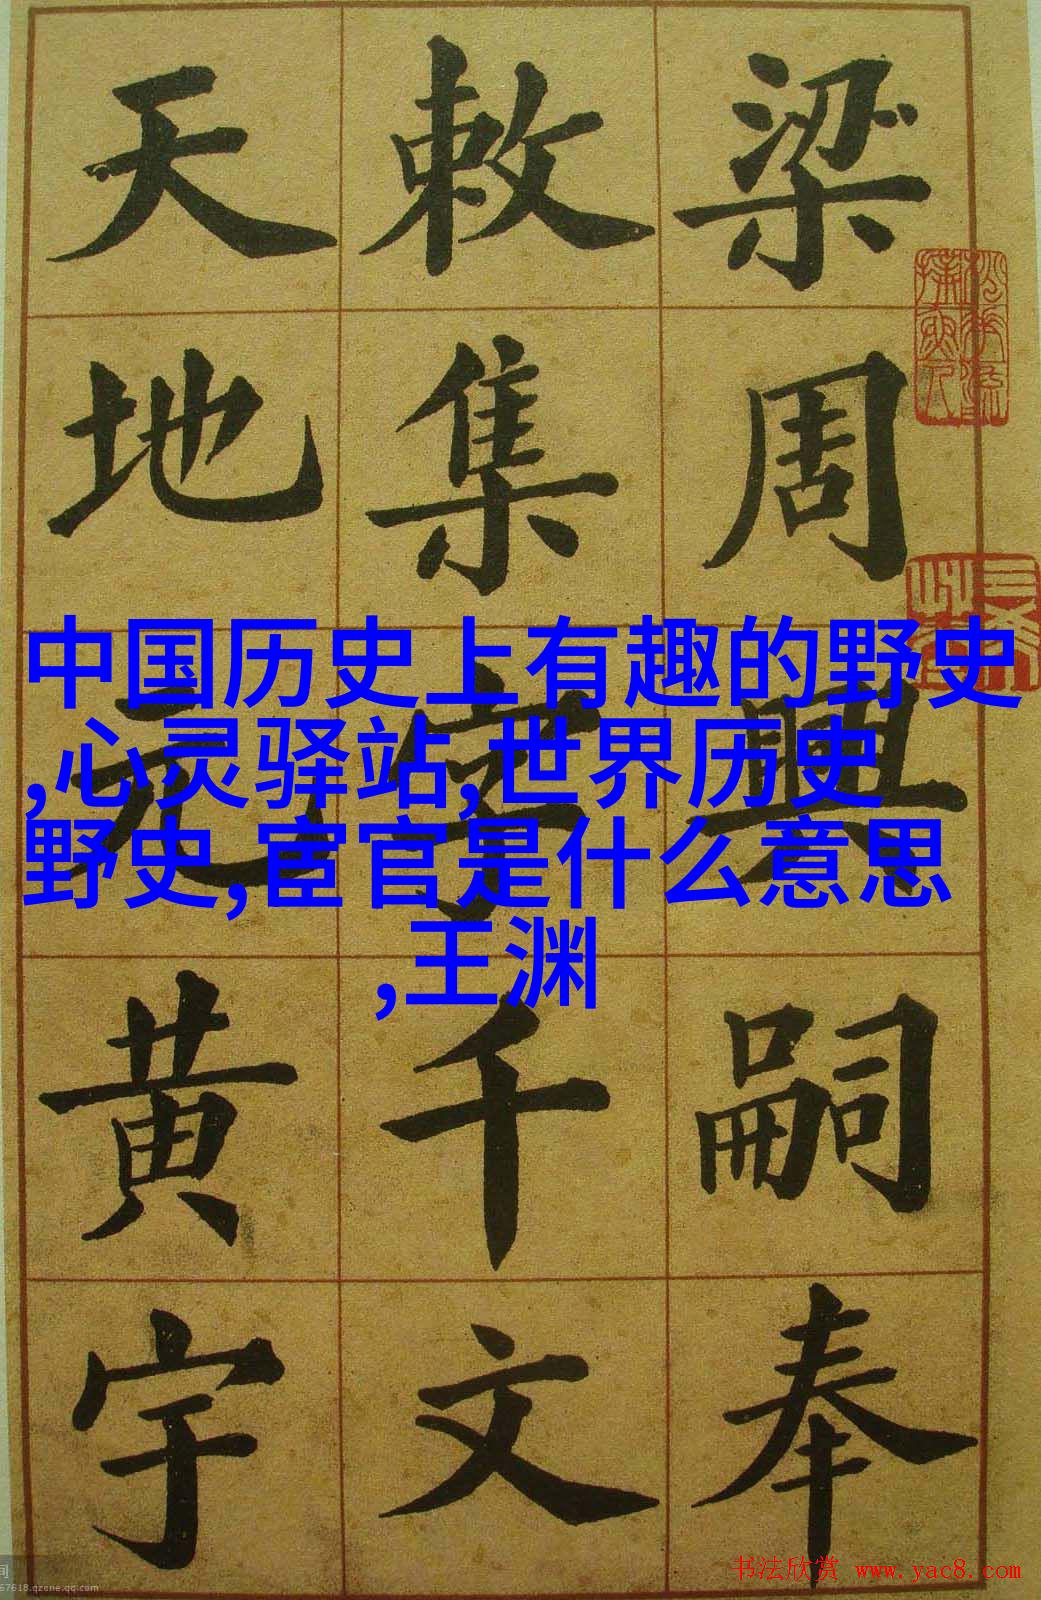 梁周興嗣奉
敕集字千文
天地元黄宇
中国历史上有趣的野史
,心灵驿站,世界历史
野史,宦官是什么意思
,王渊
书法欣赏 www.yac8.com